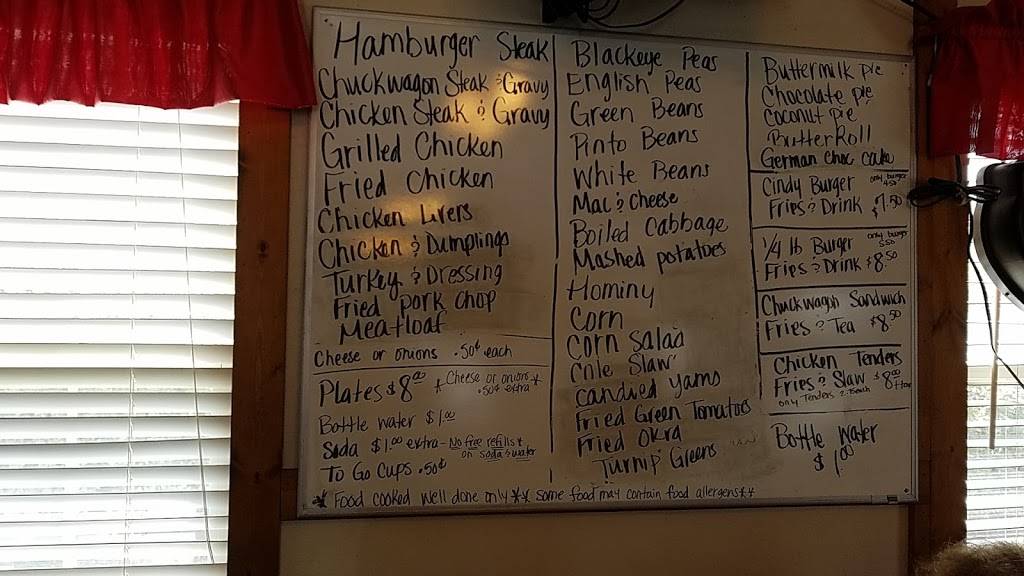 Hamburger Steak
Chuckwagon Steak & Gravy
Chicken Steak & Gravy
Grilled Chicken
Fried Chicken
Chicken Livers
Chicken & Dumplings
Turkey & Dressing
Fried pork chop
Meatloaf
Cheese or onions .50¢ each
Plates $8.00 * Cheese or onions * .50¢ extra
Bottle water $1.00
Soda $1.00 extra - No free refills * on soda & water
To Go Cups .50¢
Blackeye Peas
English Peas
Green Beans
Pinto Beans
White Beans
Mac & Cheese
Boiled Cabbage
Mashed potatoes
Hominy
Corn
Corn Salad
Cole Slaw
Candied yams
Fried Green Tomatoes
Fried Okra
Turnip Greens
Buttermilk pie
Chocolate pie
Coconut pie
Butter Roll
German Choc cake
Cindy Burger only burger
Fries & Drink $7.50
1/4 lb Burger only burger 5.50
Fries & Drink $8.50
Chuckwagon Sandwich
Fries & Tea $8.50
Chicken Tenders
Fries & Slaw $8.00
only Tenders
Bottle Water
$1.00
* Food cooked well done only ** some food may contain food allergens **